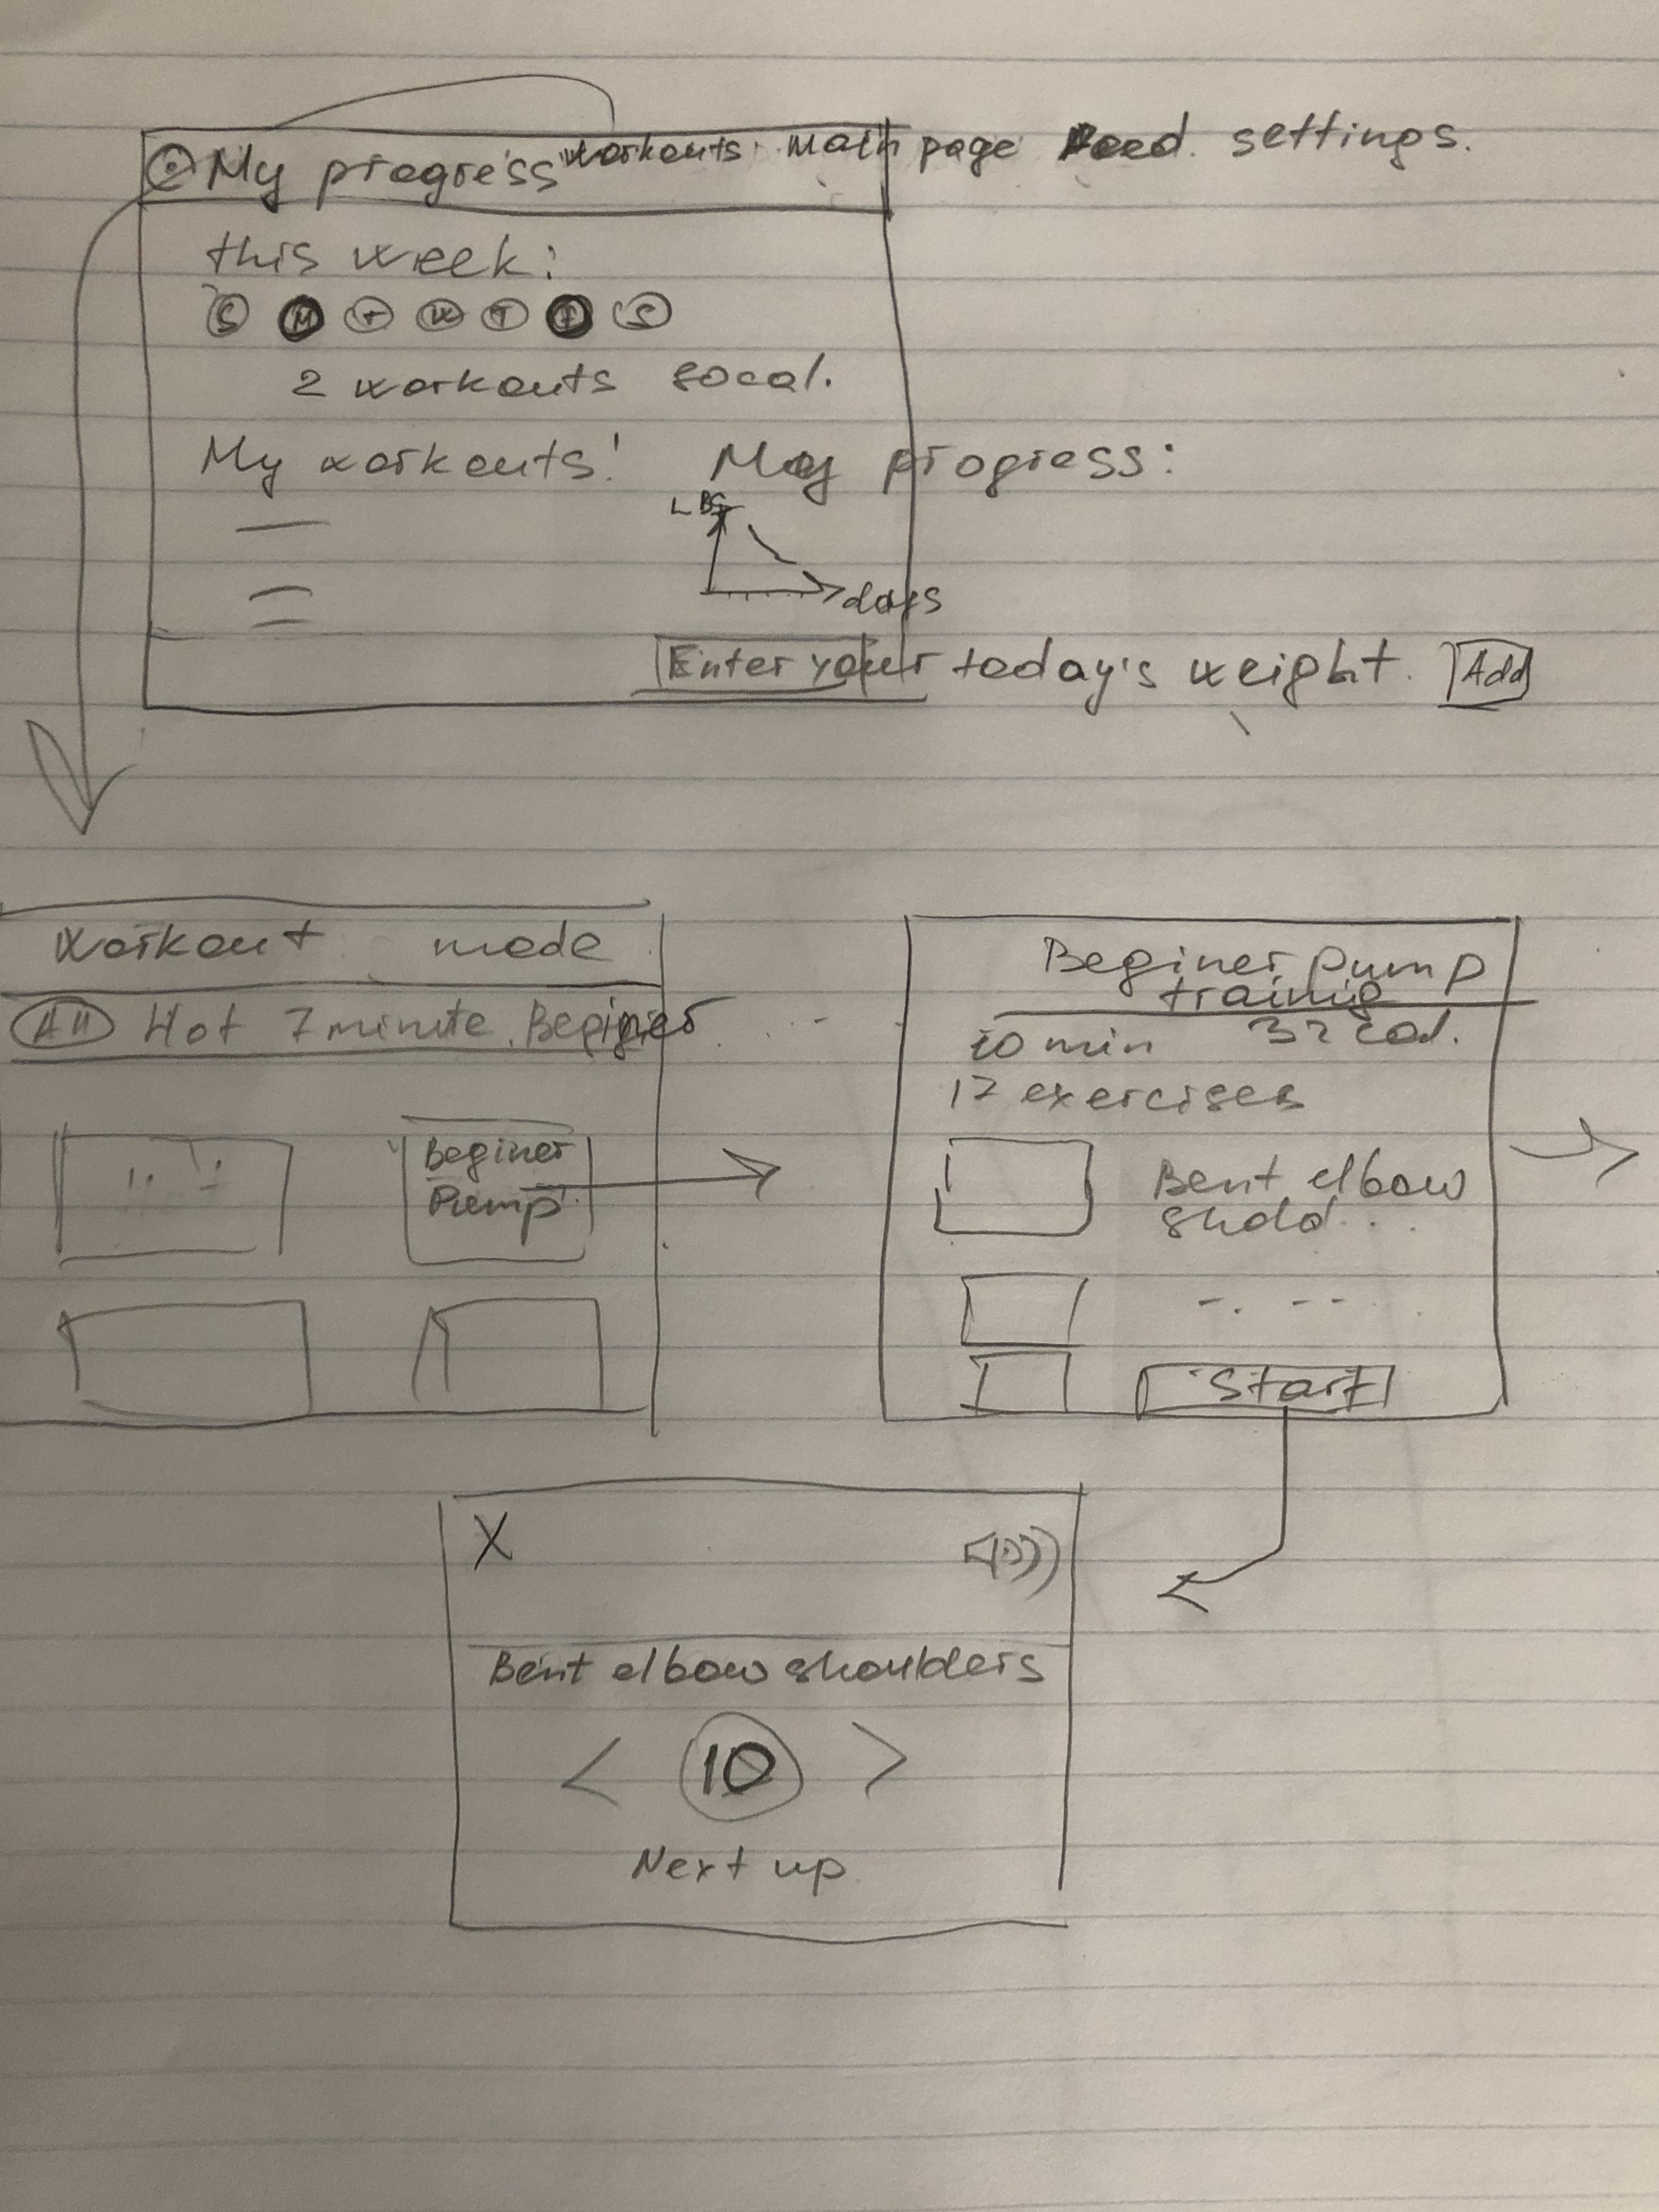 My progress workouts. Main page Feed. settings.
this week:
S M T W T F S
2 workouts 80cal.
My workouts! My progress:
LBS
days
Enter your today's weight. Add
Workout mode
All Hot 7 minute. Beginer ...
Beginer
Pump
Beginer pump
trainig
10 min 32 cal.
12 exercises
Bent elbow
Start
X
Bent elbow shoulders
< 10 >
Next up